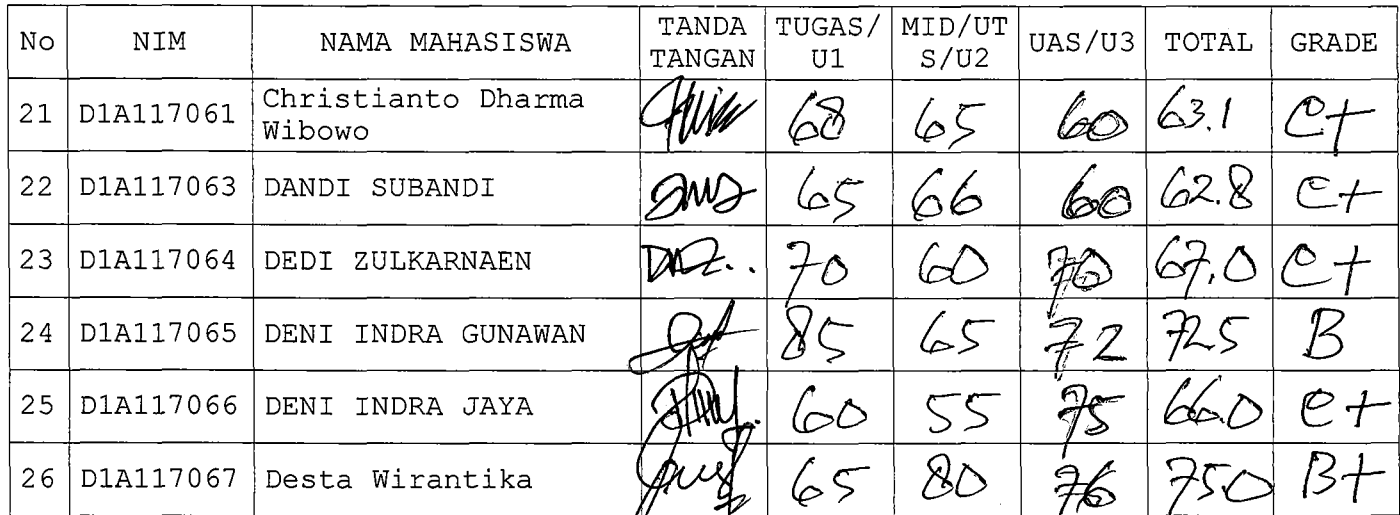 No NIM NAMA MAHASISWA TANDA TANGAN TUGAS/U1 MID/UTS/U2 UAS/U3 TOTAL GRADE
21 D1A117061 Christianto Dharma Wibowo 68 65 60 63.1 C+
22 D1A117063 DANDI SUBANDI 65 66 60 62.8 C+
23 D1A117064 DEDI ZULKARNAEN 70 60 70 67.0 C+
24 D1A117065 DENI INDRA GUNAWAN 85 65 72 72.5 B
25 D1A117066 DENI INDRA JAYA 60 55 75 66.0 C+
26 D1A117067 Desta Wirantika 65 80 76 75.0 B+